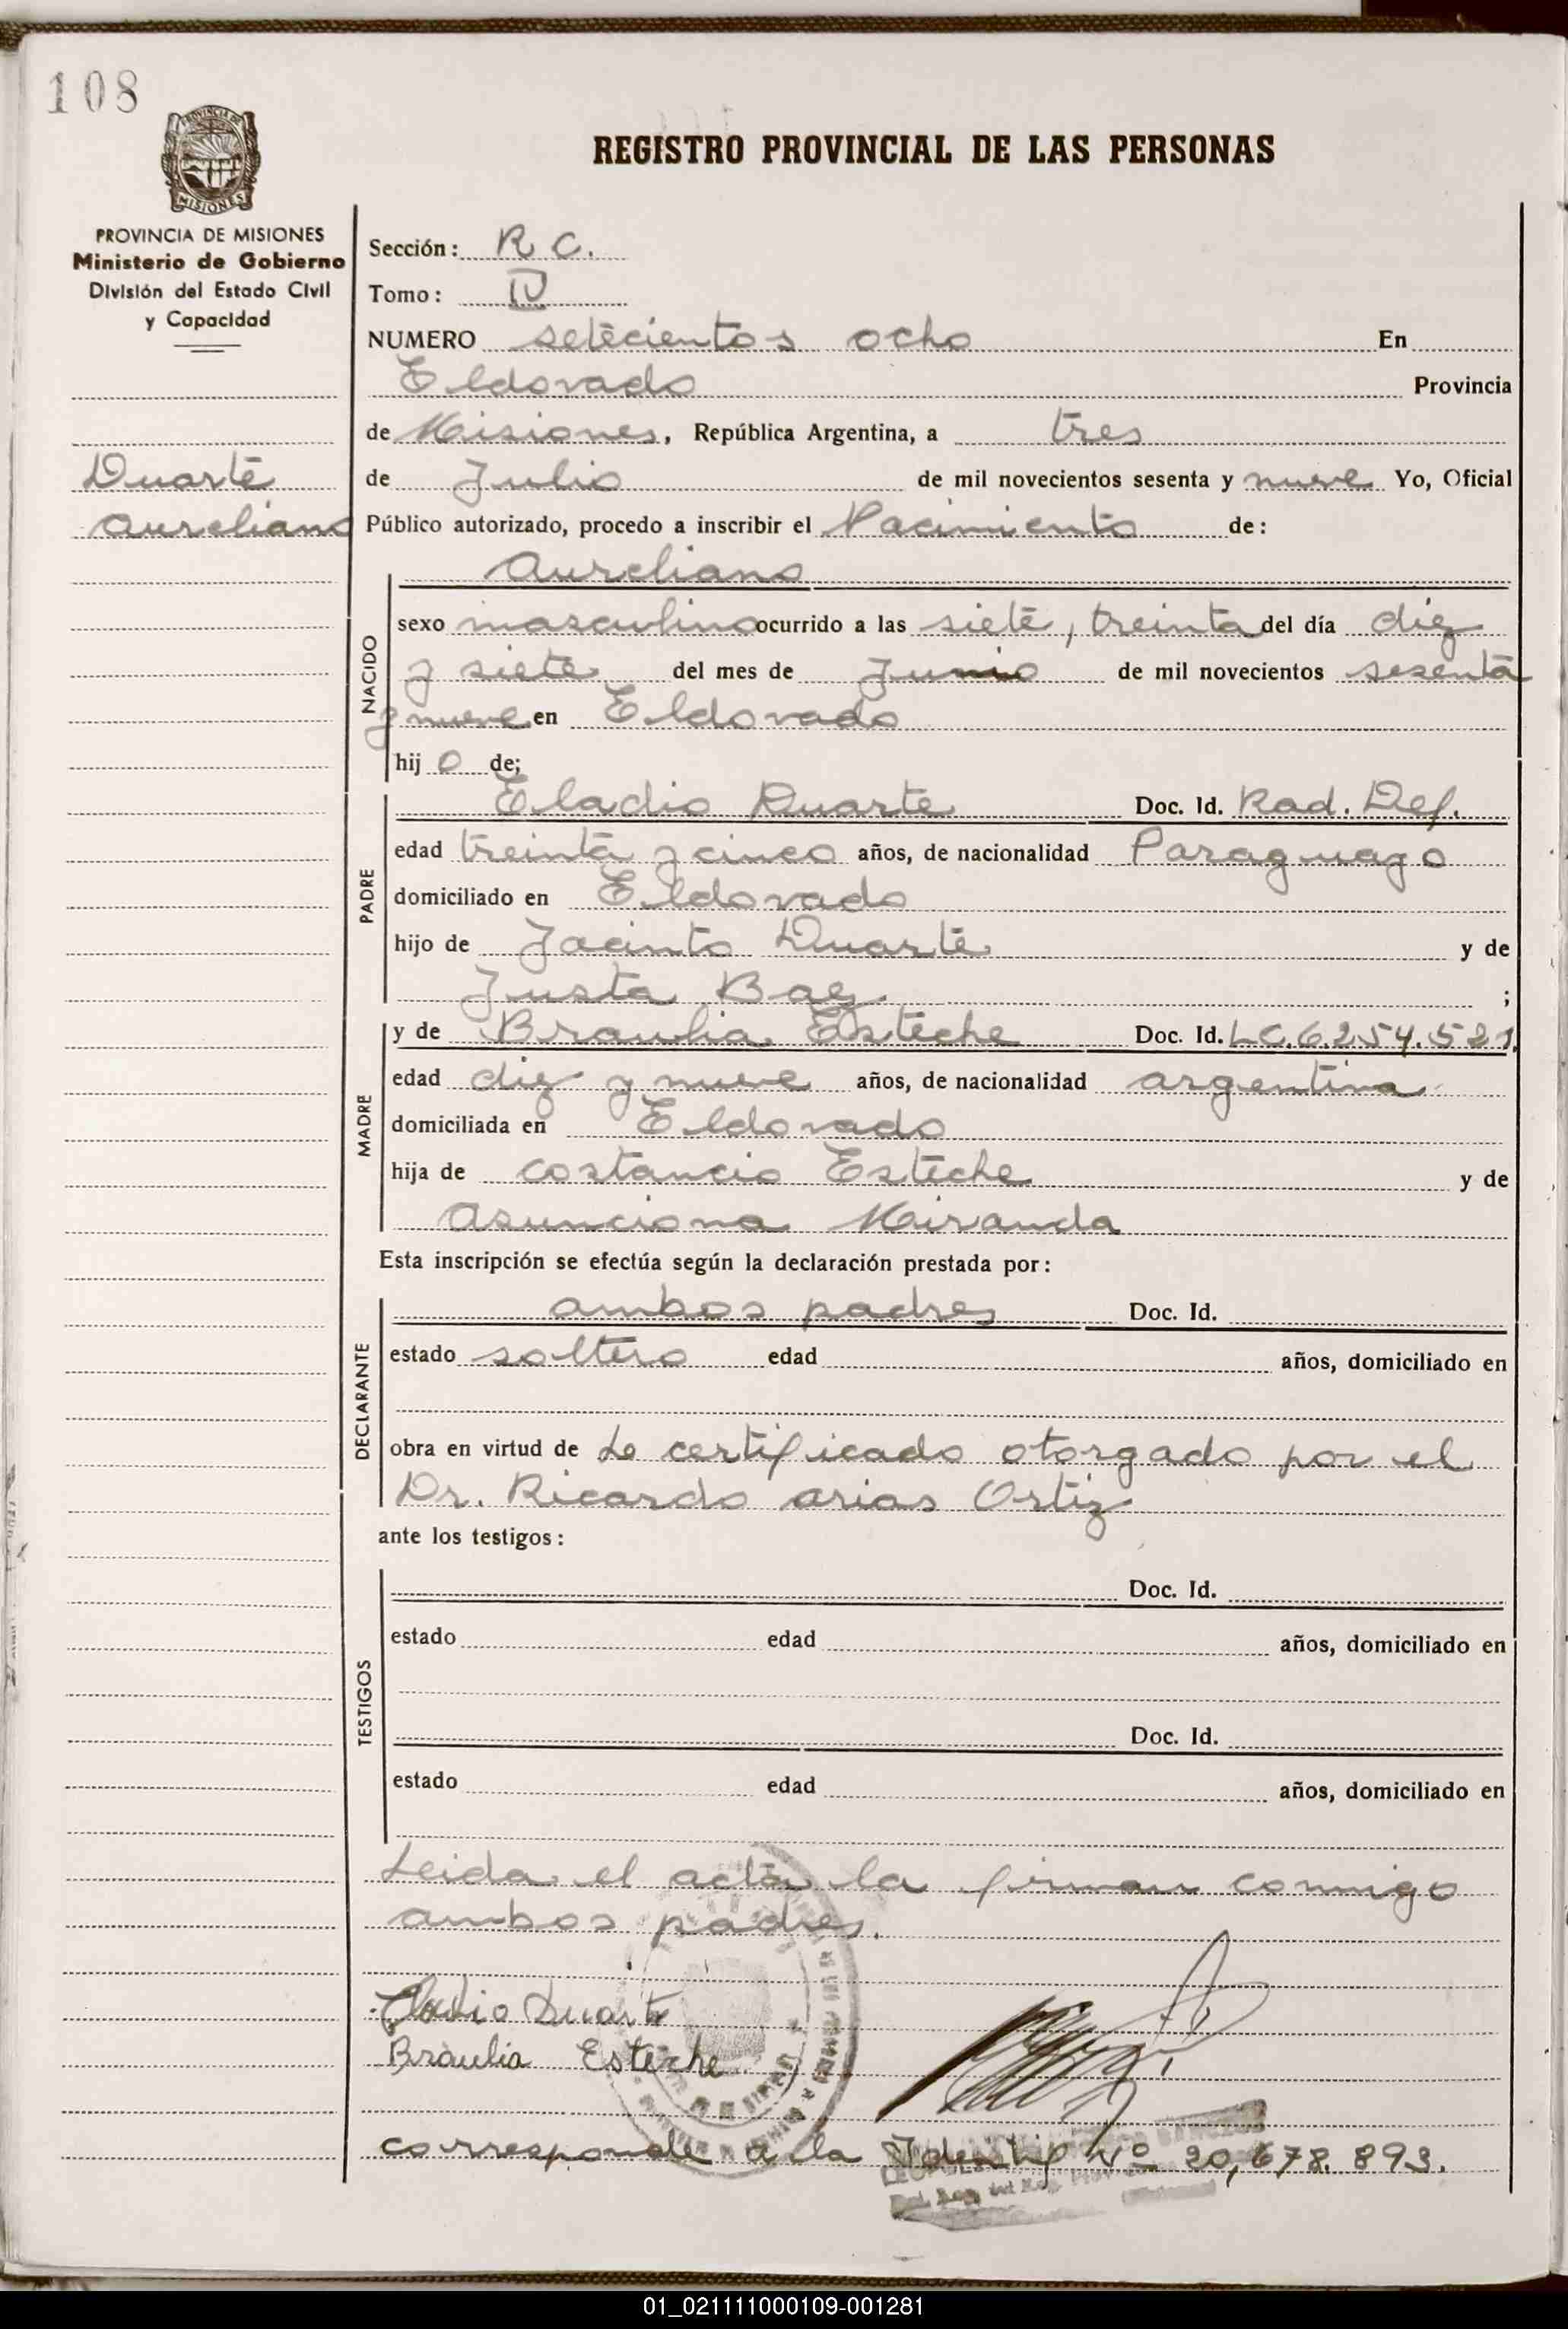 108
PROVINCIA DE
MISIONES
REGISTRO PROVINCIAL DE LAS PERSONAS
PROVINCIA DE MISIONES
Ministerio de Gobierno
División del Estado Civil
y Capacidad
Duarte
Aureliano
Sección: R.C.
Tomo: IV
NUMERO setecientos ocho En
Eldorado Provincia
de Misiones, República Argentina, a tres
de Julio de mil novecientos sesenta y nueve Yo, Oficial
Público autorizado, procedo a inscribir el Nacimiento de:
Aureliano
NACIDO
sexo masculino ocurrido a las siete, treinta del día diez
y siete del mes de Junio de mil novecientos sesenta
y nueve en Eldorado
hij o de;
PADRE
Eladio Duarte Doc. Id. Rad. Def.
edad treinta y cinco años, de nacionalidad Paraguayo
domiciliado en Eldorado
hijo de Jacinto Duarte y de
Justa Baez ;
MADRE
y de Braulia Esteche Doc. Id. L.C. 6.254.521.
edad diez y nueve años, de nacionalidad argentina
domiciliada en Eldorado
hija de costancio Esteche y de
Asunciona Miranda
Esta inscripción se efectúa según la declaración prestada por:
DECLARANTE
ambos padres Doc. Id.
estado soltero edad años, domiciliado en
obra en virtud de de certificado otorgado por el
Dr. Ricardo arias Ortiz
ante los testigos:
TESTIGOS
Doc. Id.
estado edad años, domiciliado en
Doc. Id.
estado edad años, domiciliado en
Leida el acta la firman conmigo
ambos padres.
Eladio Duarte
Braulia Esteche
corresponde a la Identif Nº 20,678.893.
01_021111000109-001281